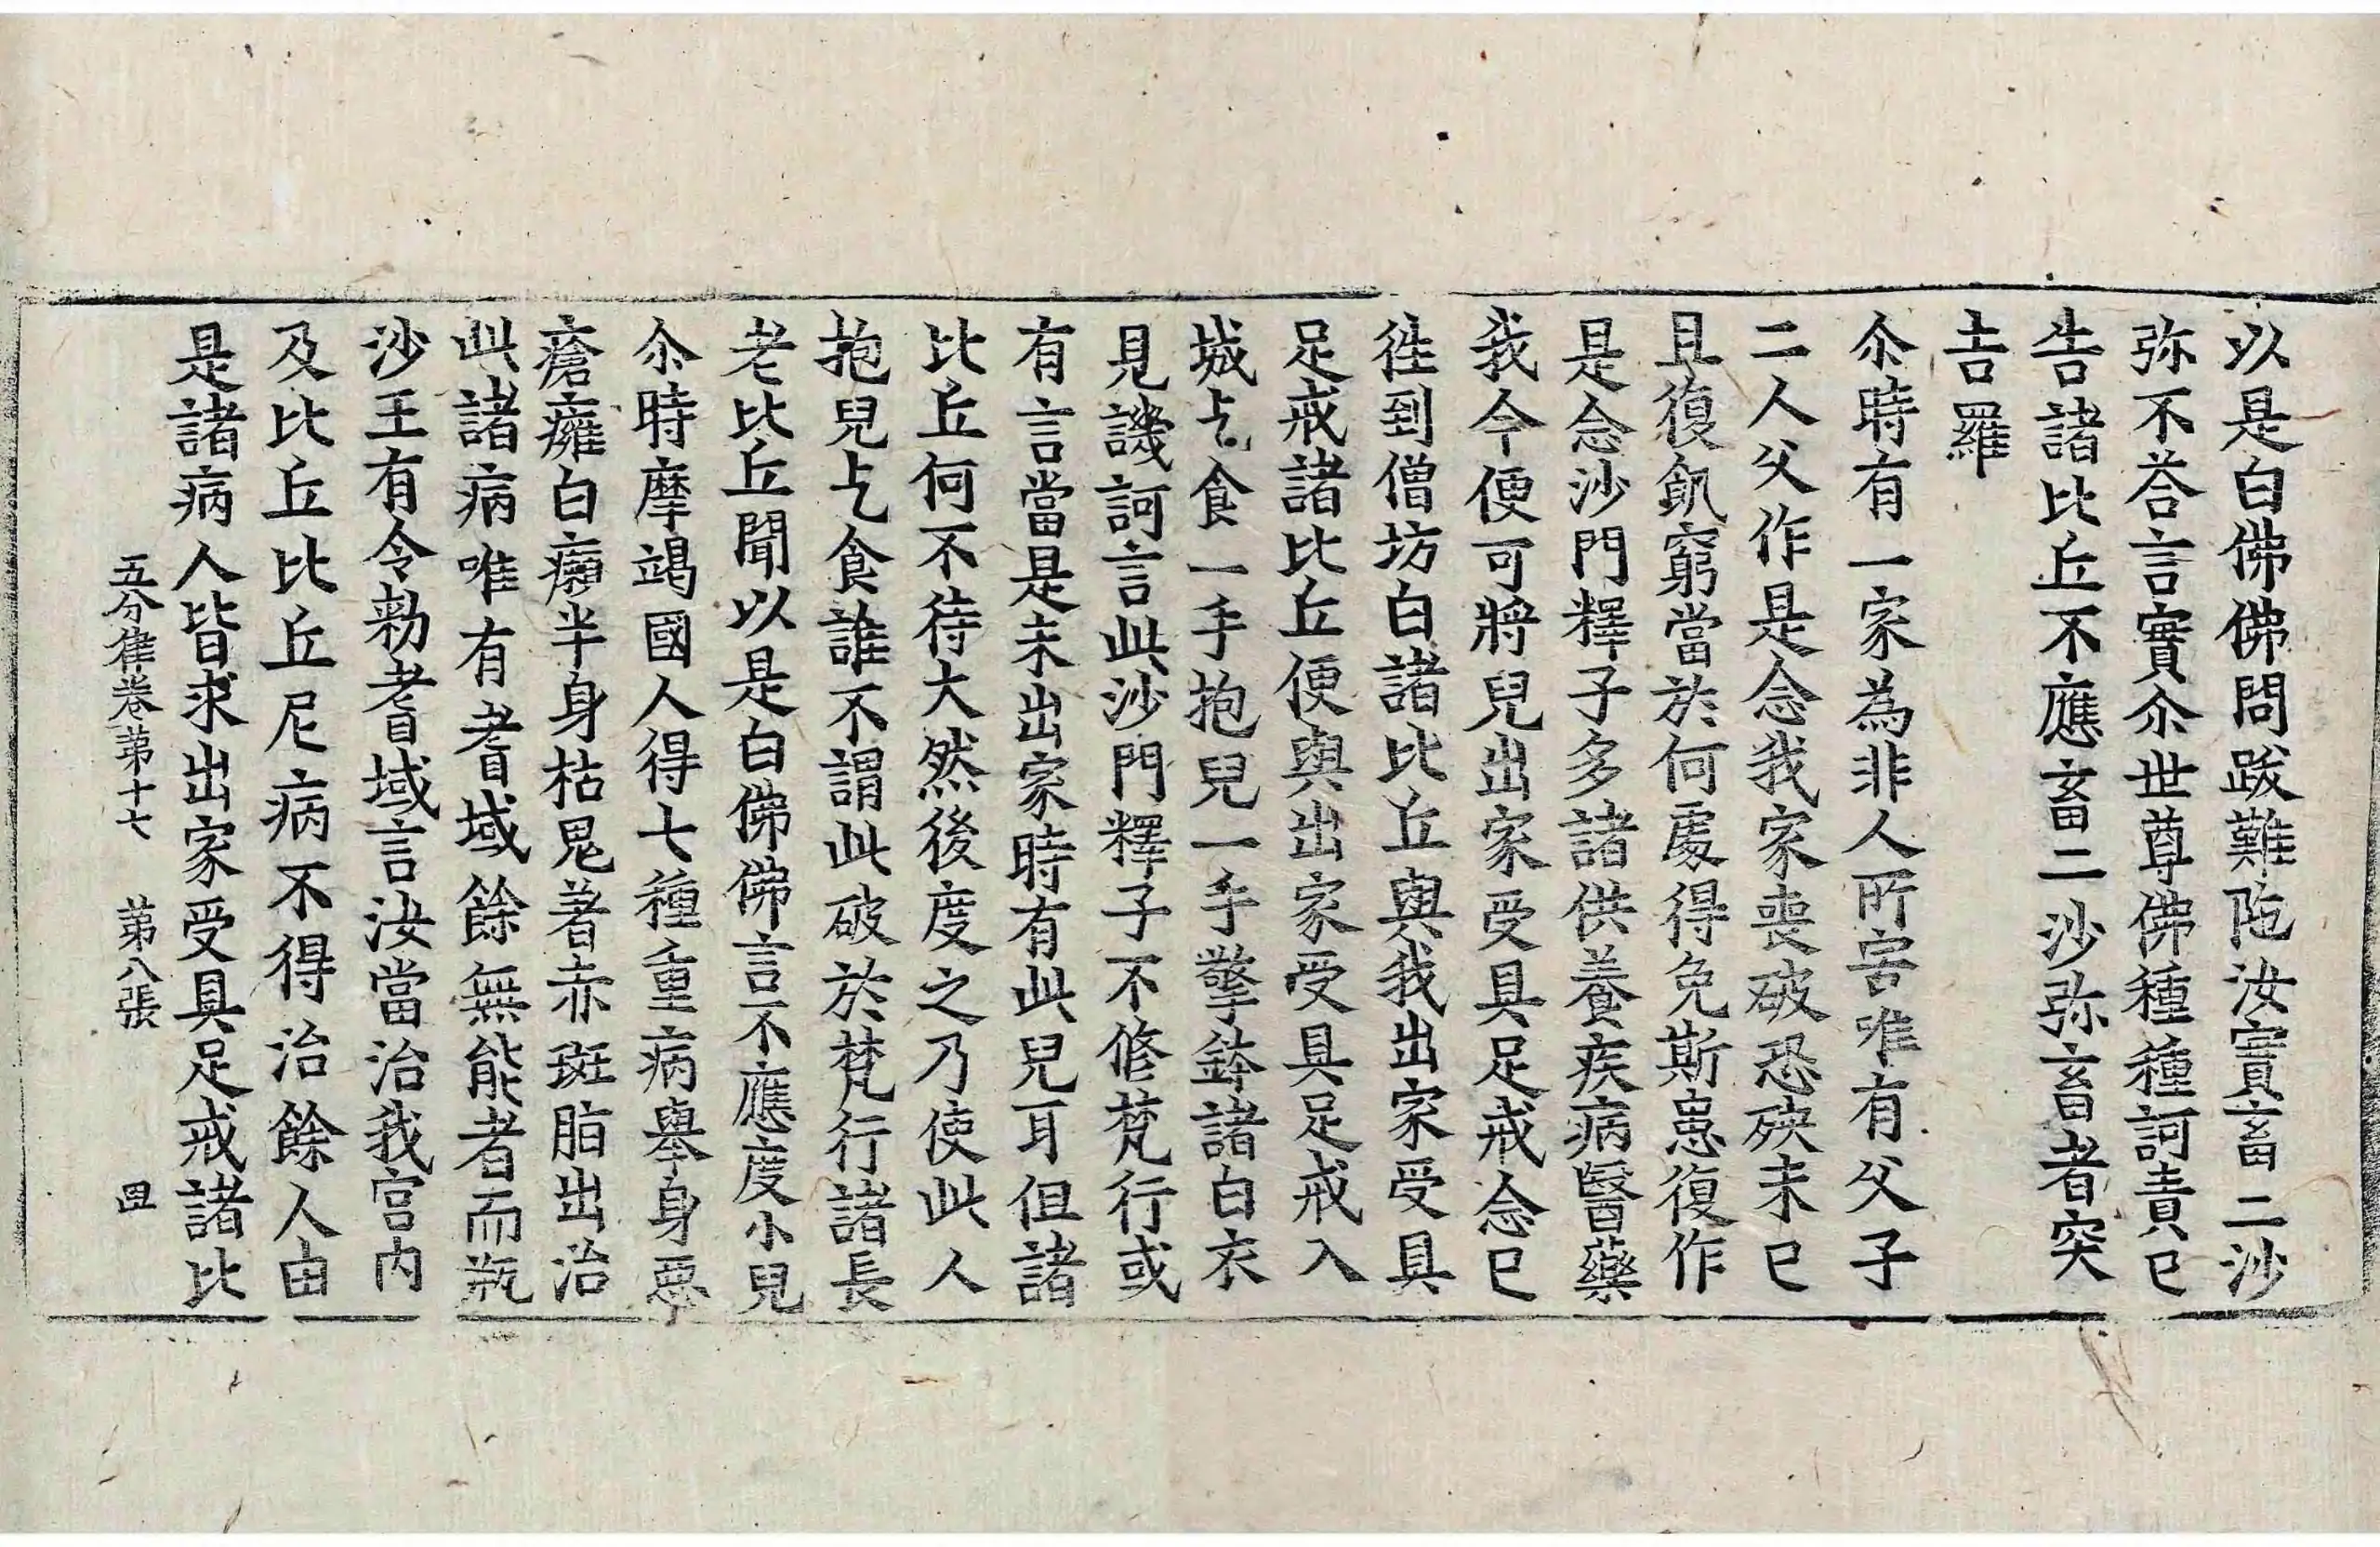 以是白佛佛問跋難陁汝實畜二沙
弥不荅言實尒世尊佛種種訶責已
告諸比丘不應畜二沙弥畜者突
吉羅
尒時有一家為非人所害唯有父子
二人父作是念我家喪破恐殃未已
且復飢窮當於何處得免斯患復作
是念沙門釋子多諸供養疾病醫藥
我今便可將兒出家受具足戒念已
徃到僧坊白諸比丘與我出家受具
足戒諸比丘便與出家受具足戒入
城乞食一手抱兒一手擎鉢諸白衣
見譏訶言此沙門釋子不修梵行或
有言當是未出家時有此兒耳但諸
比丘何不待大然後度之乃使此人
抱兒乞食誰不謂此破於梵行諸長
老比丘聞以是白佛佛言不應度小兒
尒時摩竭國人得七種重病舉身惡
瘡癰白癩半身枯鬼著赤斑脂出治
此諸病唯有耆域餘無能者而瓶
沙王有令勑耆域言汝當治我宮内
及比丘比丘尼病不得治餘人由
是諸病人皆求出家受具足戒諸比
五分律卷第十七 第八張 四